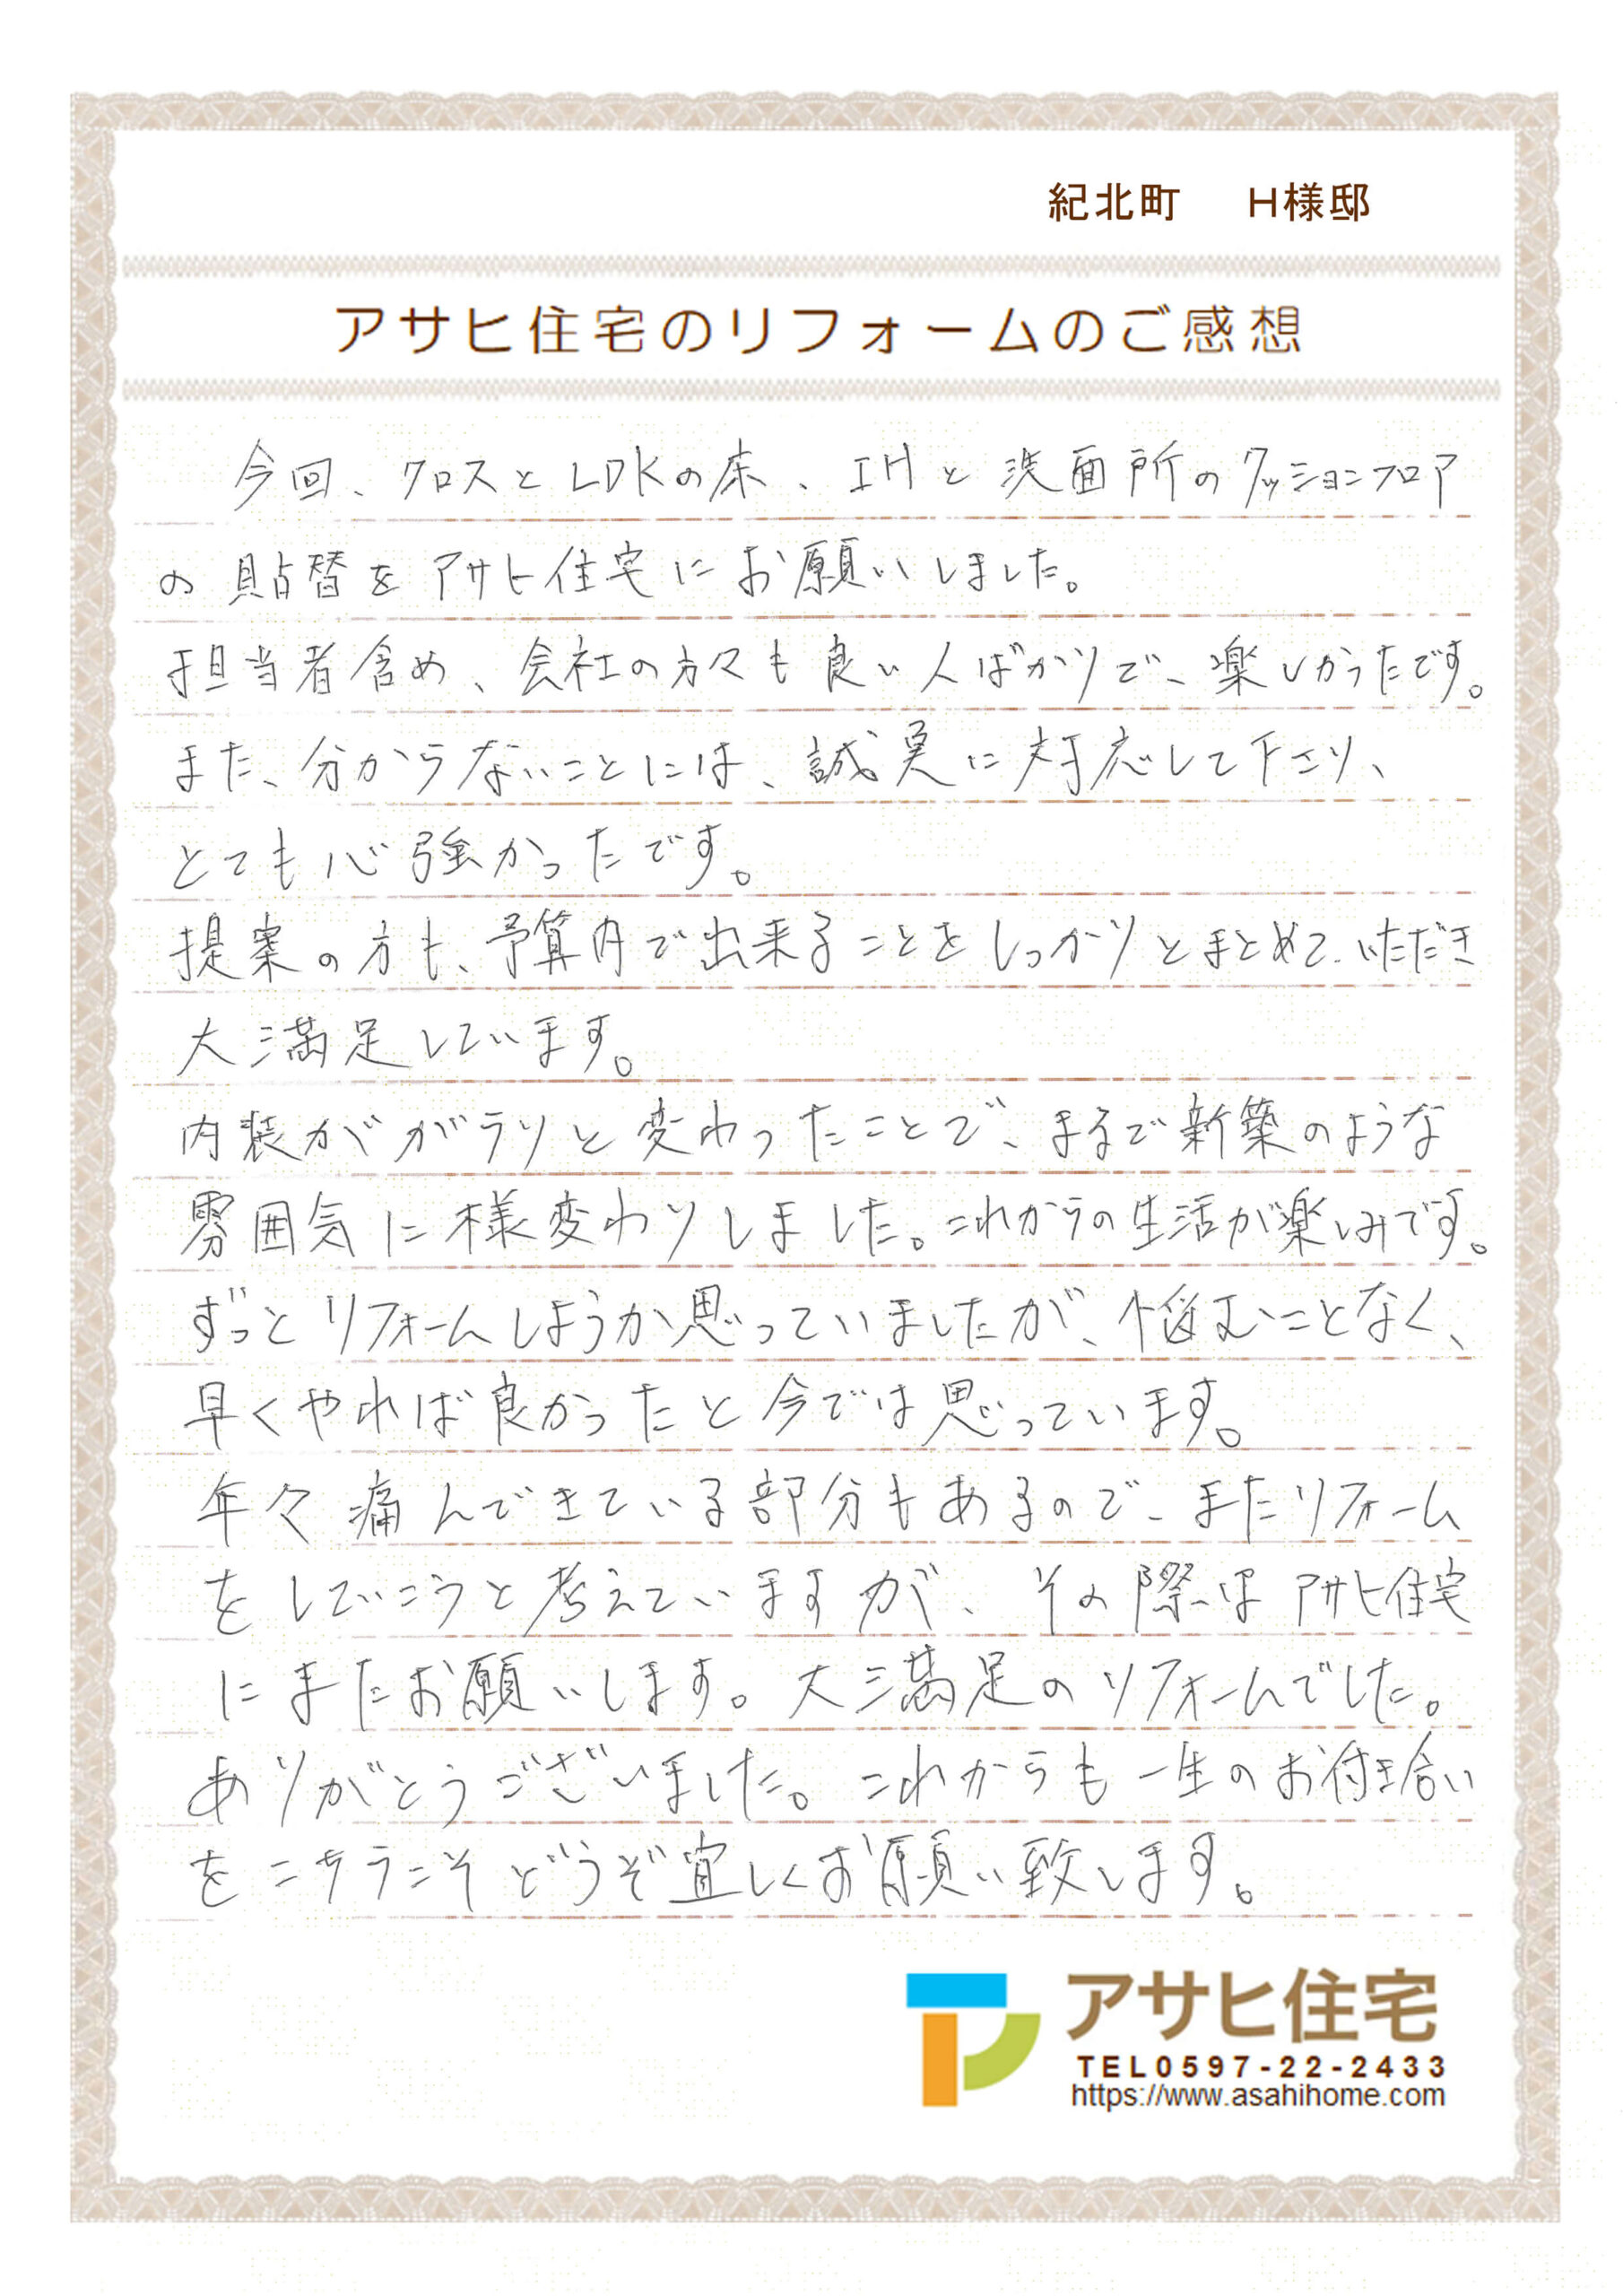 紀北町 H様邸
アサヒ住宅のリフォームのご感想
今回、クロスとLDKの床、IHと洗面所のクッションフロア
の貼替をアサヒ住宅にお願いしました。
担当者含め、会社の方々も良い人ばかりで、楽しかったです。
また、分からないことには、誠実に対応して下さり、
とても心強かったです。
提案の方も、予算内で出来ることをしっかりとまとめていただき
大満足しています。
内装がガラリと変わったことで、まるで新築のような
雰囲気に様変わりしました。これからの生活が楽しみです。
ずっとリフォームしようか思っていましたが、悩むことなく、
早くやれば良かったと今では思っています。
年々痛んできている部分もあるので、またリフォーム
をしていこうと考えていますが、その際はアサヒ住宅
にまたお願いします。大満足のリフォームでした。
ありがとうございました。これからも一生のお付き合い
をコチラこそどうぞ宜しくお願い致します。
アサヒ住宅
TEL0597-22-2433
https://www.asahihome.com